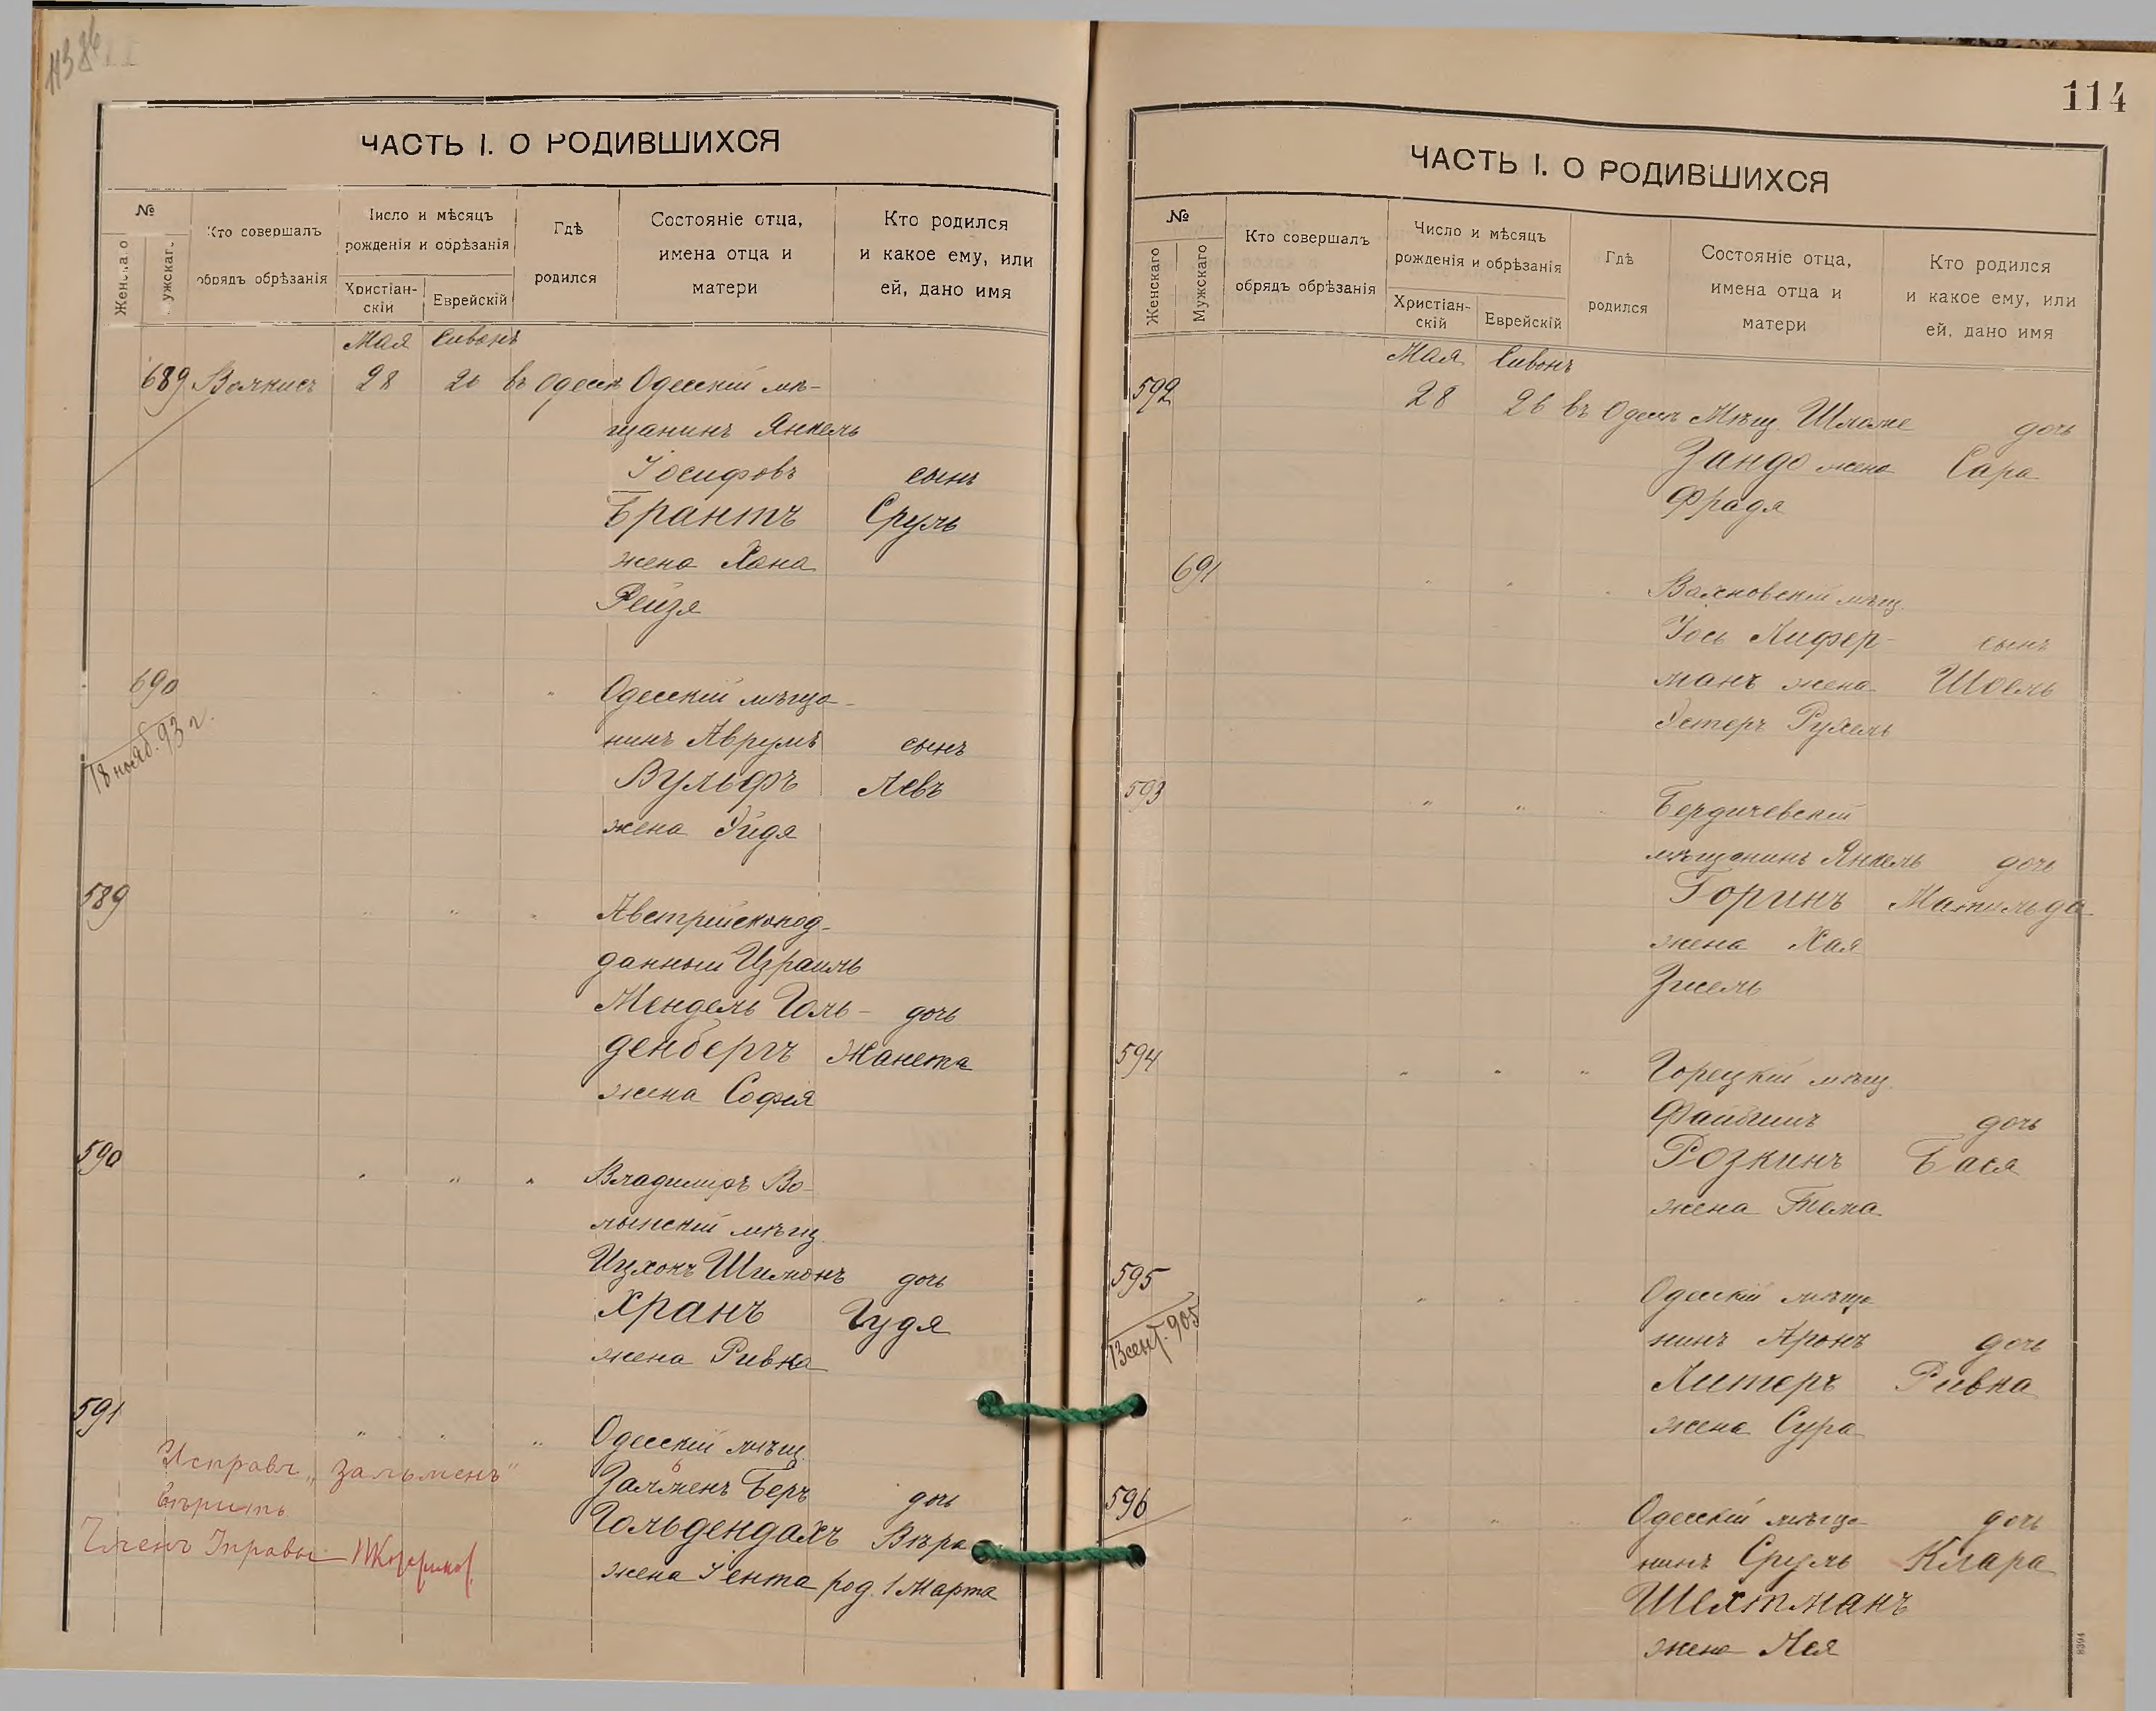 ЧАСТЬ I. О РОДИВШИХСЯ
№
Женскаго
Мужскаго
Кто совершалъ
обрядъ обрѣзанія
Число и мѣсяцъ
рожденія и обрѣзанія
Христіан-
скій
Еврейскій
Гдѣ
родился
Состояніе отца,
имена отца и
матери
Кто родился
и какое ему, или
ей, дано имя
Мая Сивонъ
689 28 26 въ Одессѣ Одесскій мѣ-
щанинъ Янкель
Іосифовъ сынъ
Брантъ Сруль
жена Хана
Рейзя
690 " " " Одесскій мѣща-
18 нояб. 93 г.
нинъ Аврумъ сынъ
Вульфъ Левъ
жена Эйдя
589 " " " Австрійскопод-
данный Израиль
Мендель Голь- дочь
денбергъ Жанета
жена Софія
590 " " " Владимиръ Во-
лынскій мѣщ.
Ицхокъ Шимонъ дочь
Хранъ Гудя
жена Ривка
591 " " " Одесскій мѣщ.
Исправл. „Зальменъ"
ь
Залменъ Беръ дочь
вѣрить
Гольдендахъ Вѣра
Членъ Управы
жена Іента род. 1 Марта
114
ЧАСТЬ I. О РОДИВШИХСЯ
№
Женскаго
Мужскаго
Кто совершалъ
обрядъ обрѣзанія
Число и мѣсяцъ
рожденія и обрѣзанія
Христіан-
скій
Еврейскій
Гдѣ
родился
Состояніе отца,
имена отца и
матери
Кто родился
и какое ему, или
ей, дано имя
Мая Сивонъ
592 28 26 въ Одессѣ Мѣщ. Шлеме дочь
Зандо жена Сара
Фрадя
691 " " " Вахновскій мѣщ.
Іось Лифер- сынъ
манъ жена Шоель
Эстеръ Рухель
593 " " " Бердичевскій
мѣщанинъ Янкель дочь
Горинъ Матильда
жена Хая
Зисель
594 " " " Горецкій мѣщ.
Файбишъ дочь
Розкинъ Бася
жена Тема
595 " " " Одесскій мѣща
13 сент. 905
нинъ Аронъ дочь
Литеръ Ривка
жена Сура
596 " " " Одесскій мѣща- дочь
нинъ Сруль Клара
Шехтманъ
жена Лея